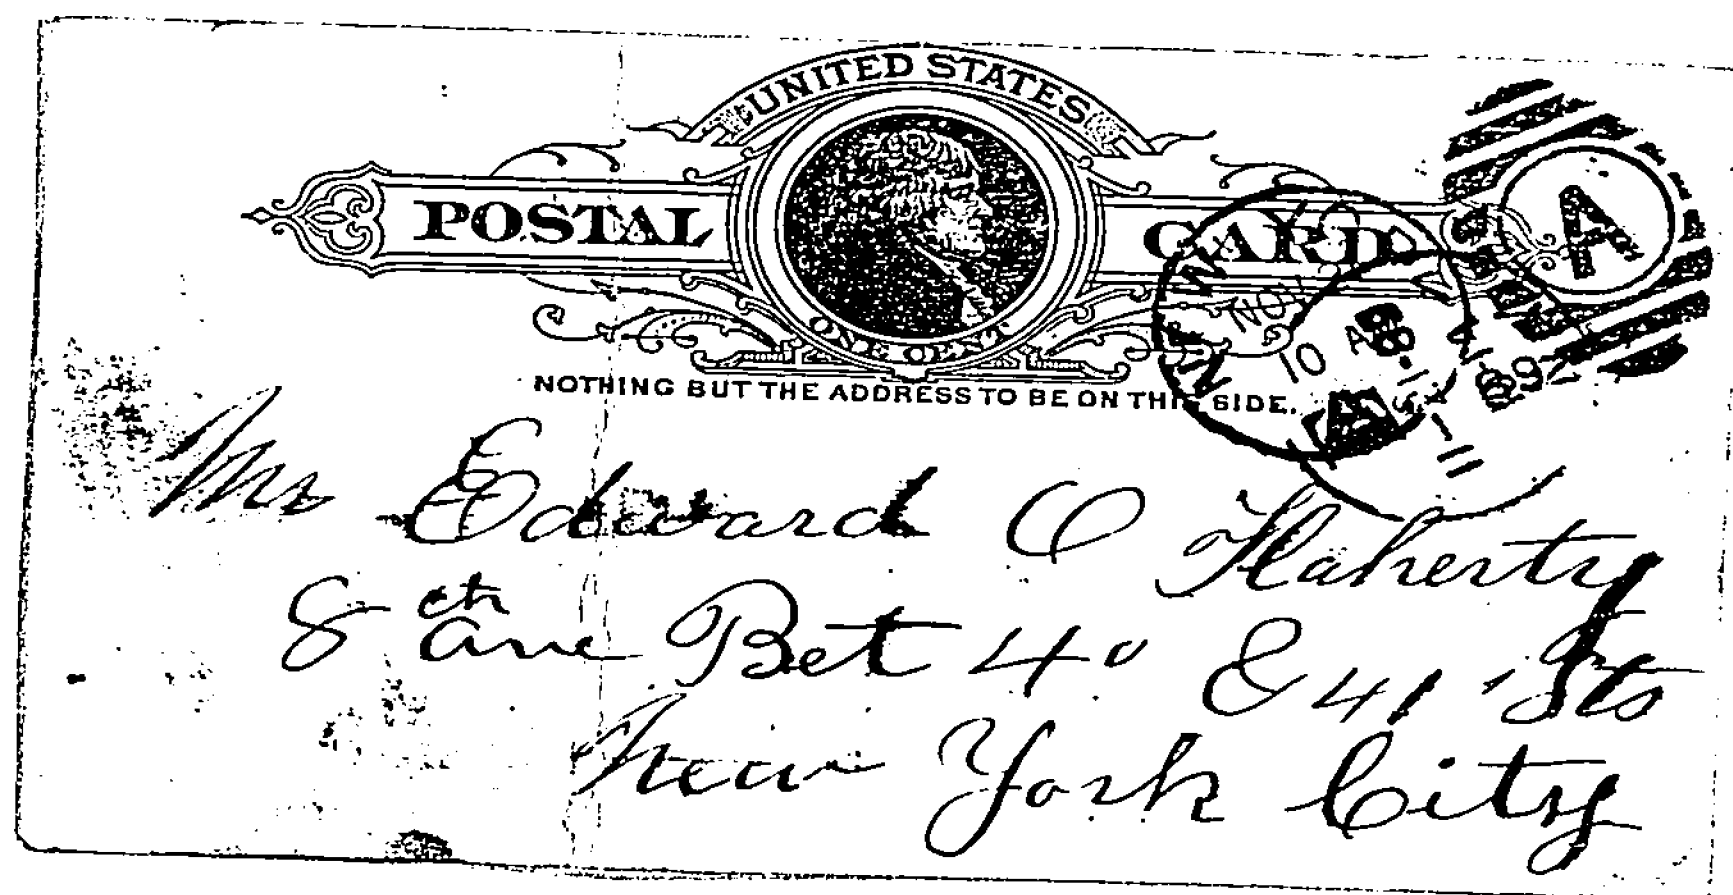 UNITED STATES
POSTAL CARD
ONE CENT
NOTHING BUT THE ADDRESS TO BE ON THIS SIDE.
A
NOV
10 A
89
Mr Edward O Flaherty
8 eth ave Bet 40 & 41 Sts
New York City